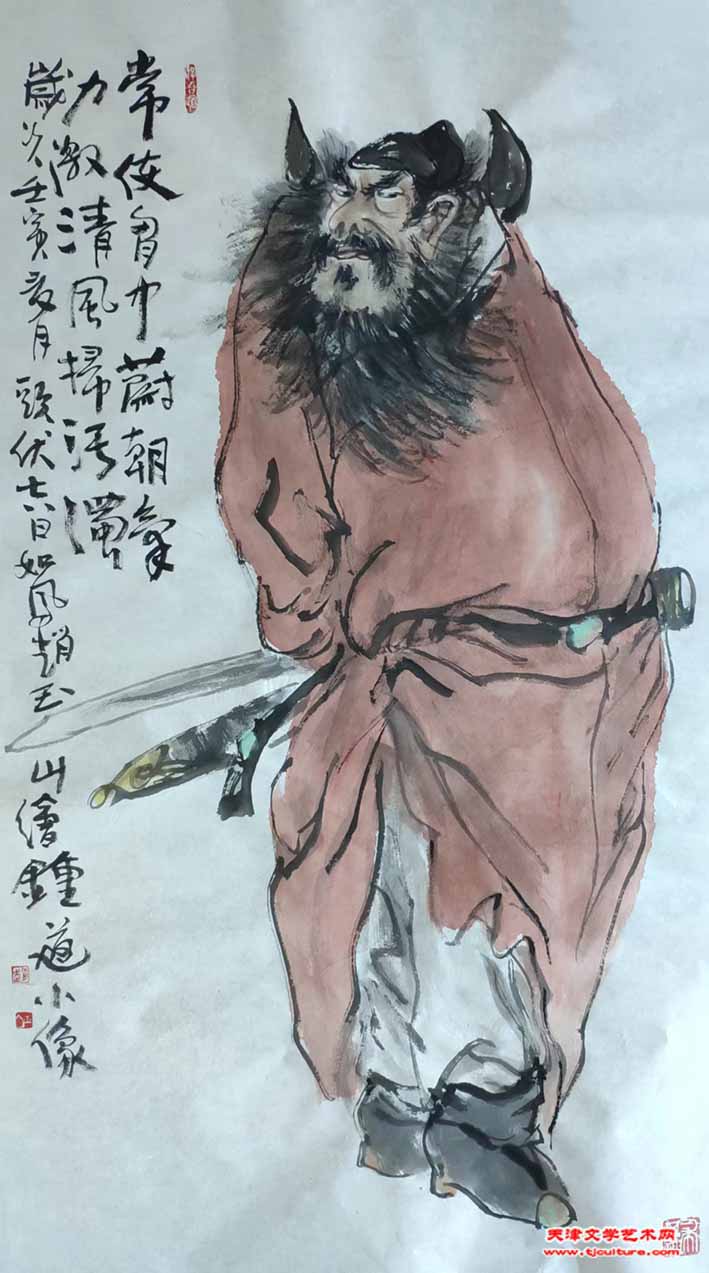 常使胷中蔚朝氣
力激清風掃污濁
歲次壬寅夏月頭伏十六日如風趙玉山繪鍾馗小像
天津文学艺术网
www.tjculture.com